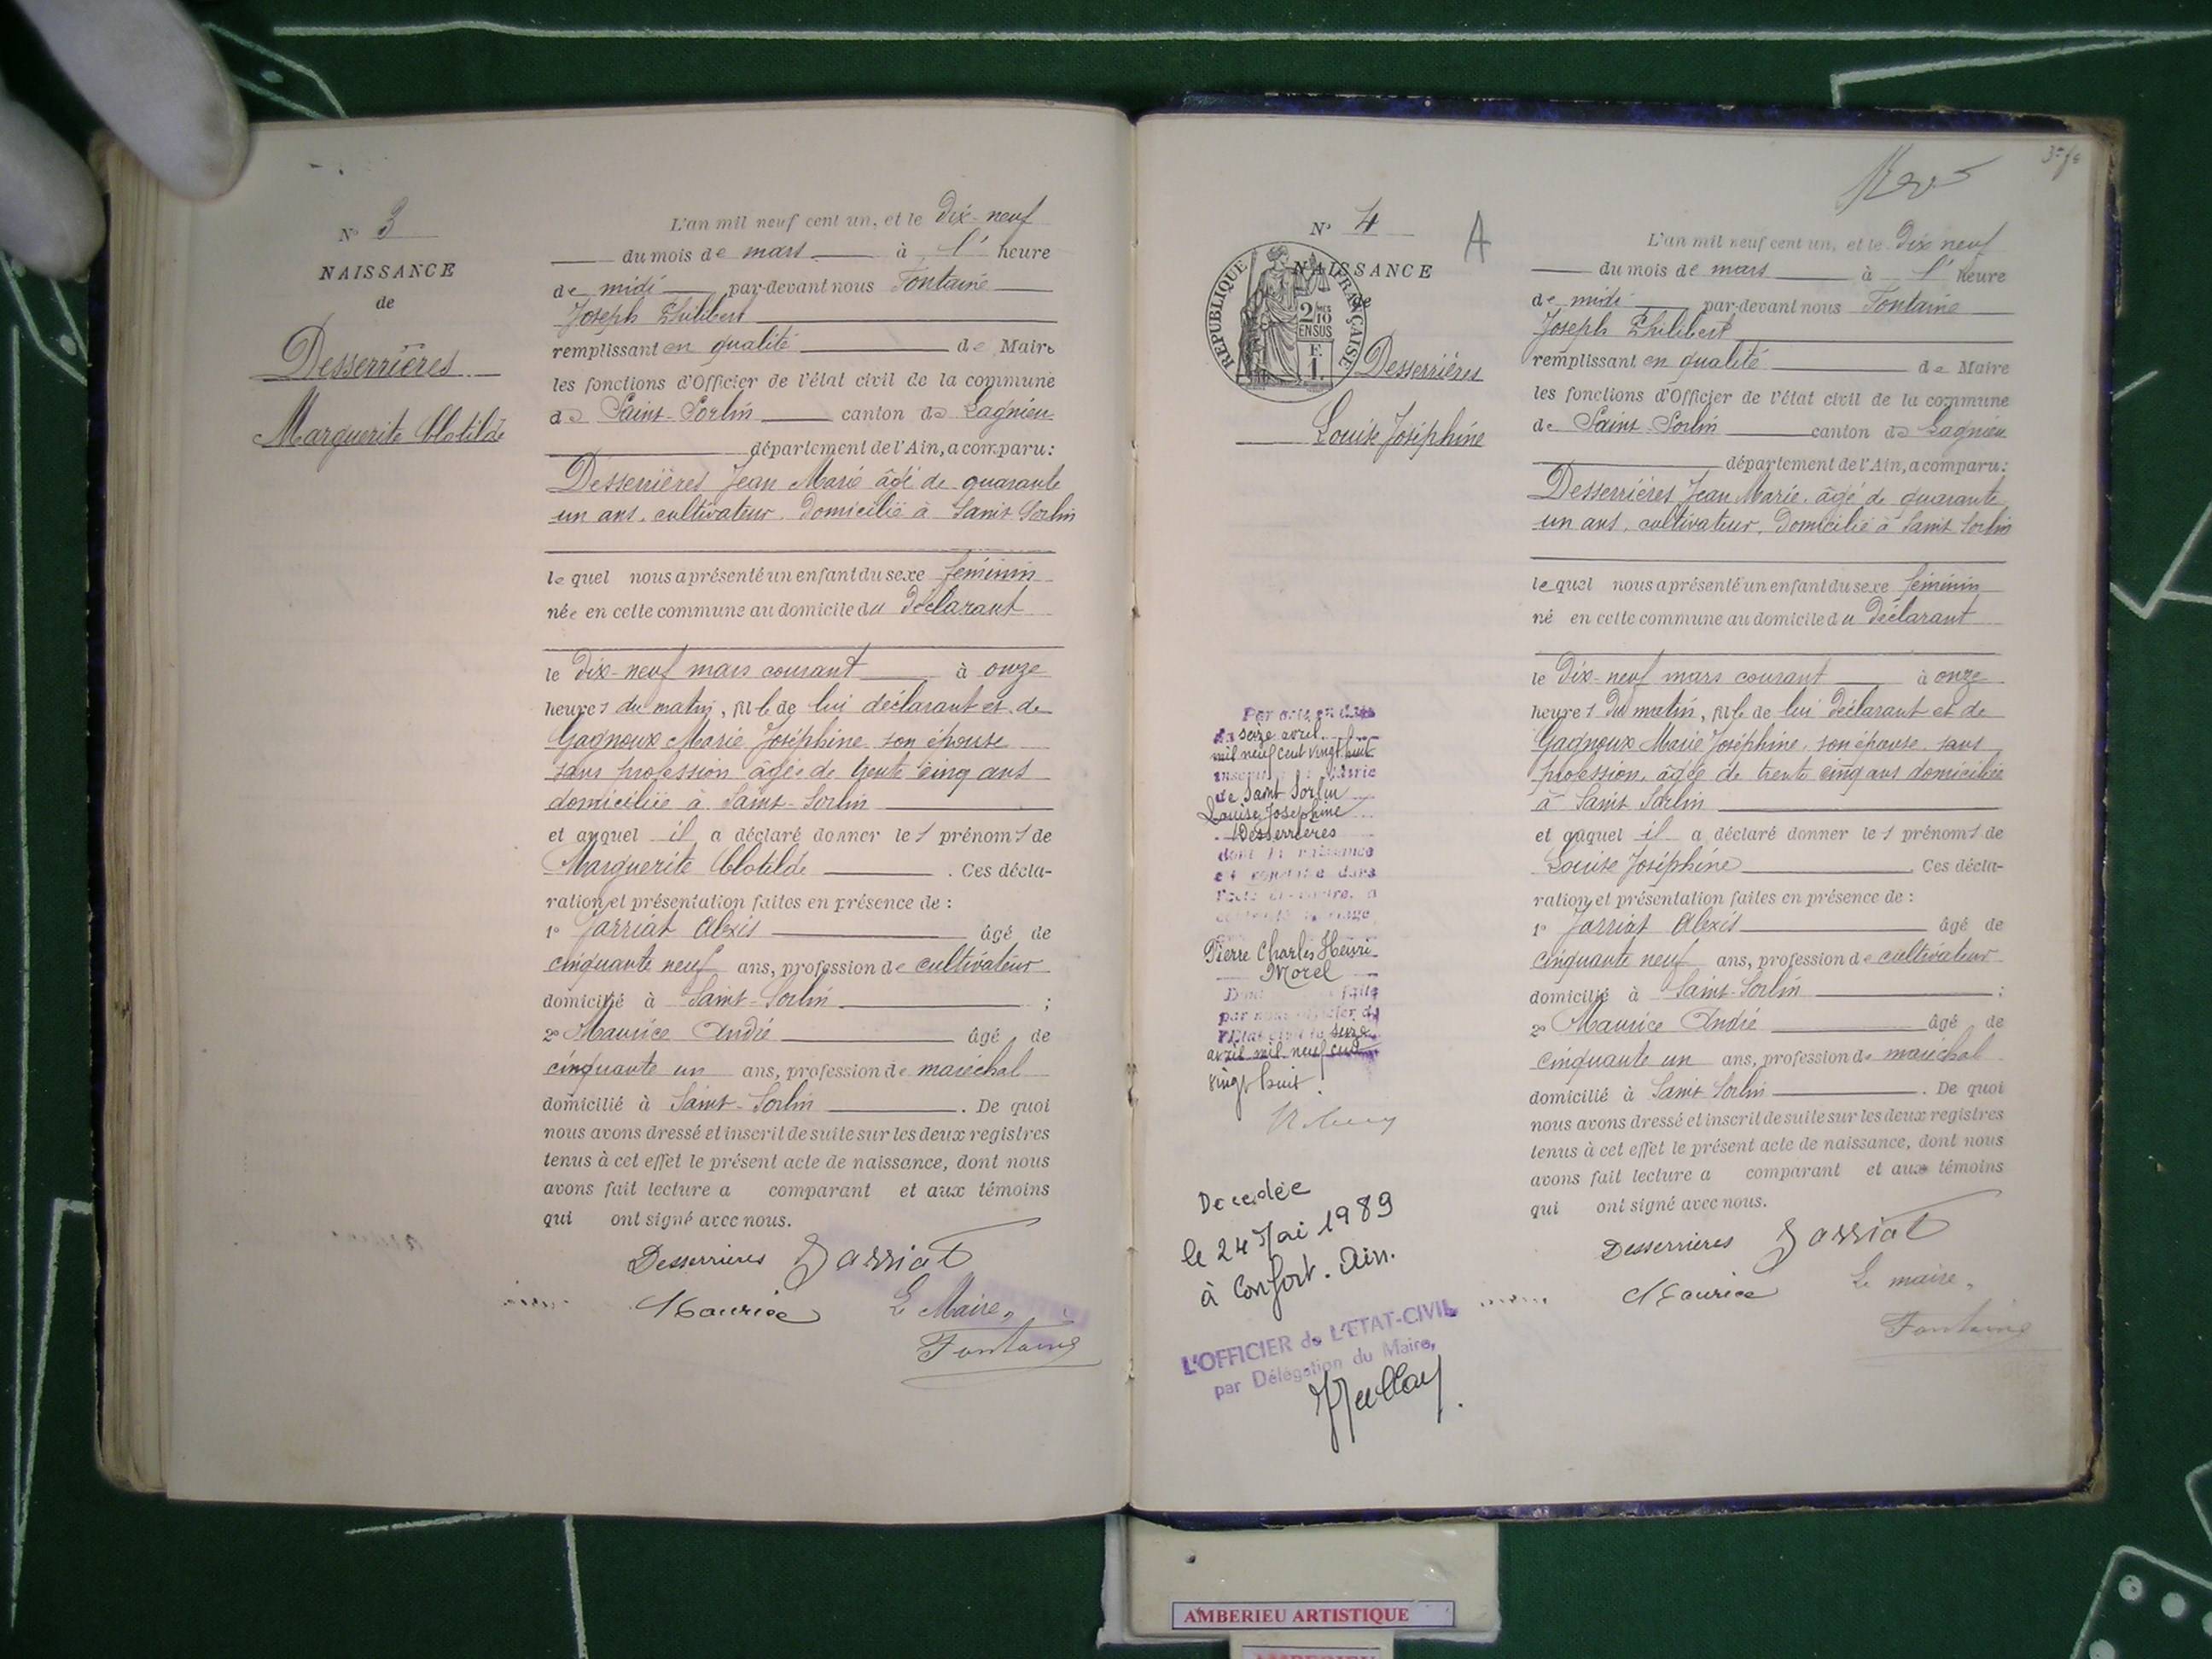 N° 3
NAISSANCE
de
Desserrières
Marguerite Clotilde
L'an mil neuf cent un, et le Dix-neuf
du mois de mars à l' heure
de midi par-devant nous Fontaine
Joseph Philibert
remplissant en qualité de Maire
les fonctions d'Officier de l'état civil de la commune
de Saint-Sorlin canton de Lagnieu
département de l'Ain, a comparu:
Desserrières Jean Marie âgé de quarante
un ans, cultivateur, domicilié à Saint Sorlin
le quel nous a présenté un enfant du sexe féminin
née en cette commune au domicile du Déclarant
le dix-neuf mars courant à onze
heures du matin, fille de lui déclarant et de
Gagnoux Marie Joséphine son épouse
sans profession âgée de trente cinq ans
domiciliée à Saint-Sorlin
et auquel il a déclaré donner les prénoms de
Marguerite Clotilde . Ces décla-
ration et présentation faites en présence de :
1° Jarriat Alexis âgé de
cinquante neuf ans, profession de cultivateur
domicilié à Saint-Sorlin ;
2° Maurice André âgé de
cinquante un ans, profession de maréchal
domicilié à Saint-Sorlin . De quoi
nous avons dressé et inscrit de suite sur les deux registres
tenus à cet effet le présent acte de naissance, dont nous
avons fait lecture a comparant et aux témoins
qui ont signé avec nous.
Desserrieres Jarriat
Maurice Le Maire,
Fontaine
N° 4 A
NAISSANCE
de
REPUBLIQUE FRANÇAISE
2/10 EN SUS
F. 1.
Desserrières
Louise Joséphine
Par acte en date
du seize avril
mil neuf cent vingt huit
inscrit mairie
de Saint Sorlin
Louise Josephine
Desserrières
dont la naissance
est constatée dans
l'acte ci-contre, a
contracté mariage
avec
Pierre Charles Henri
Morel
par nous officier de
l'Etat civil le seize
avril mil neuf cent
vingt huit
Decedée
le 24 Mai 1989
à Confort. Ain.
L'OFFICIER de L'ETAT-CIVIL
par Délégation du Maire,
L'an mil neuf cent un, et le Dix neuf
du mois de mars à l' heure
de midi par-devant nous Fontaine
Joseph Philibert
remplissant en qualité de Maire
les fonctions d'Officier de l'état civil de la commune
de Saint Sorlin canton de Lagnieu
département de l'Ain, a comparu:
Desserrières Jean Marie, âgé de quarante
un ans, cultivateur, domicilié à Saint Sorlin
le quel nous a présenté un enfant du sexe féminin
né en cette commune au domicile du Déclarant
le Dix-neuf mars courant à onze
heures du matin, fille de lui déclarant et de
Gagnoux Marie Joséphine, son épouse, sans
profession, âgée de trente cinq ans domiciliée
à Saint Sorlin
et auquel il a déclaré donner les prénoms de
Louise Joséphine . Ces décla-
ration et présentation faites en présence de :
1° Jarriat Alexis âgé de
cinquante neuf ans, profession de cultivateur
domicilié à Saint-Sorlin ;
2° Maurice André âgé de
cinquante un ans, profession de maréchal
domicilié à Saint Sorlin . De quoi
nous avons dressé et inscrit de suite sur les deux registres
tenus à cet effet le présent acte de naissance, dont nous
avons fait lecture a comparant et aux témoins
qui ont signé avec nous.
Desserrieres Jarriat
Maurice Le maire,
Fontaine
AMBERIEU ARTISTIQUE